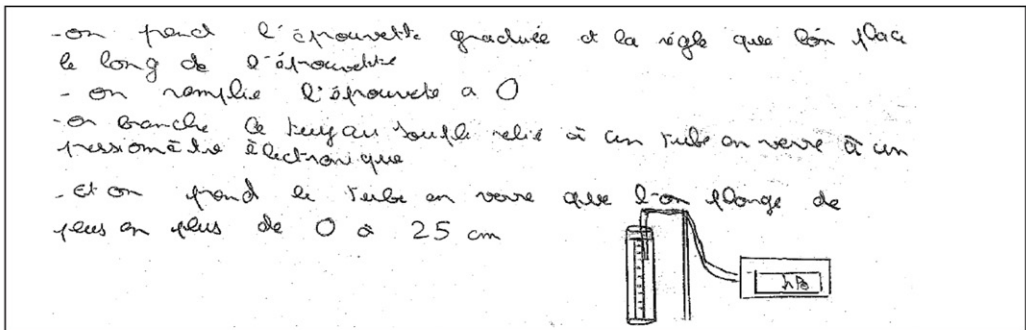 - on prend l'éprouvette graduée et la règle que l'on place
le long de l'éprouvette
- on remplie l'éprouvete a O
- on branche le tuyau souple relié à un tube en verre à un
pressiomètre électronique
- et on prend le tube en verre que l'on plonge de
plus en plus de 0 à 25 cm
hPa